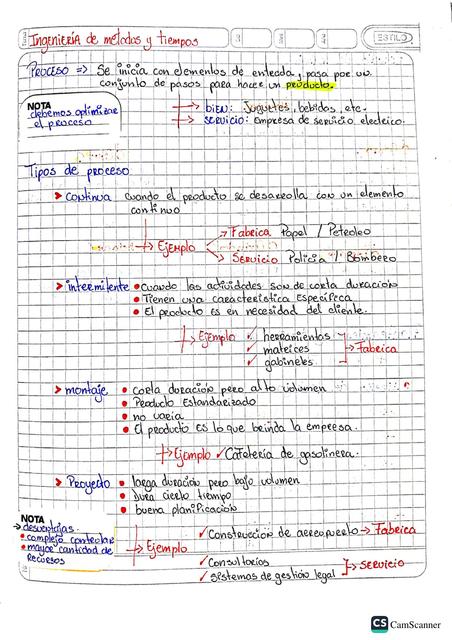 Ingeniería de métodos y tiempos
ESTILO
Proceso => Se inicia con elementos de entrada y pasa por un
conjunto de pasos para hacer un producto.
NOTA
debemos optimizar
el proceso
→ bien: Juguetes, bebidas, etc.
→ Servicio: Empresa de servicio electrico.
Tipos de proceso
➤ continua cuando el producto se desarrolla con un elemento
continuo
→ Ejemplo
→ Fabrica Papel / Petroleo
→ Servicio Policia / Bombero
➤ intermitente • Cuando las actividades son de corta duración
• Tienen una caracteristica Especifica
• El producto es en necesidad del cliente.
→ Ejemplo ✓ herramientas
✓ matrices → Fabrica
✓ gabinetes
➤ montaje • corta duración pero alto volumen
• Producto Estandarizado
• no varia
• El producto es lo que brinda la empresa.
→ Ejemplo ✓ Cafeteria de gasolinera.
➤ Proyecto • larga duración pero bajo volumen
• Dura cierto tiempo
• buena planificación
NOTA
→ desventajas.
• complejo controlar
• mayor cantidad de
recursos
→ Ejemplo
✓ Construcción de aereopuerto → Fabrica
✓ Consultorios
✓ sistemas de gestión legal → Servicio
CS CamScanner